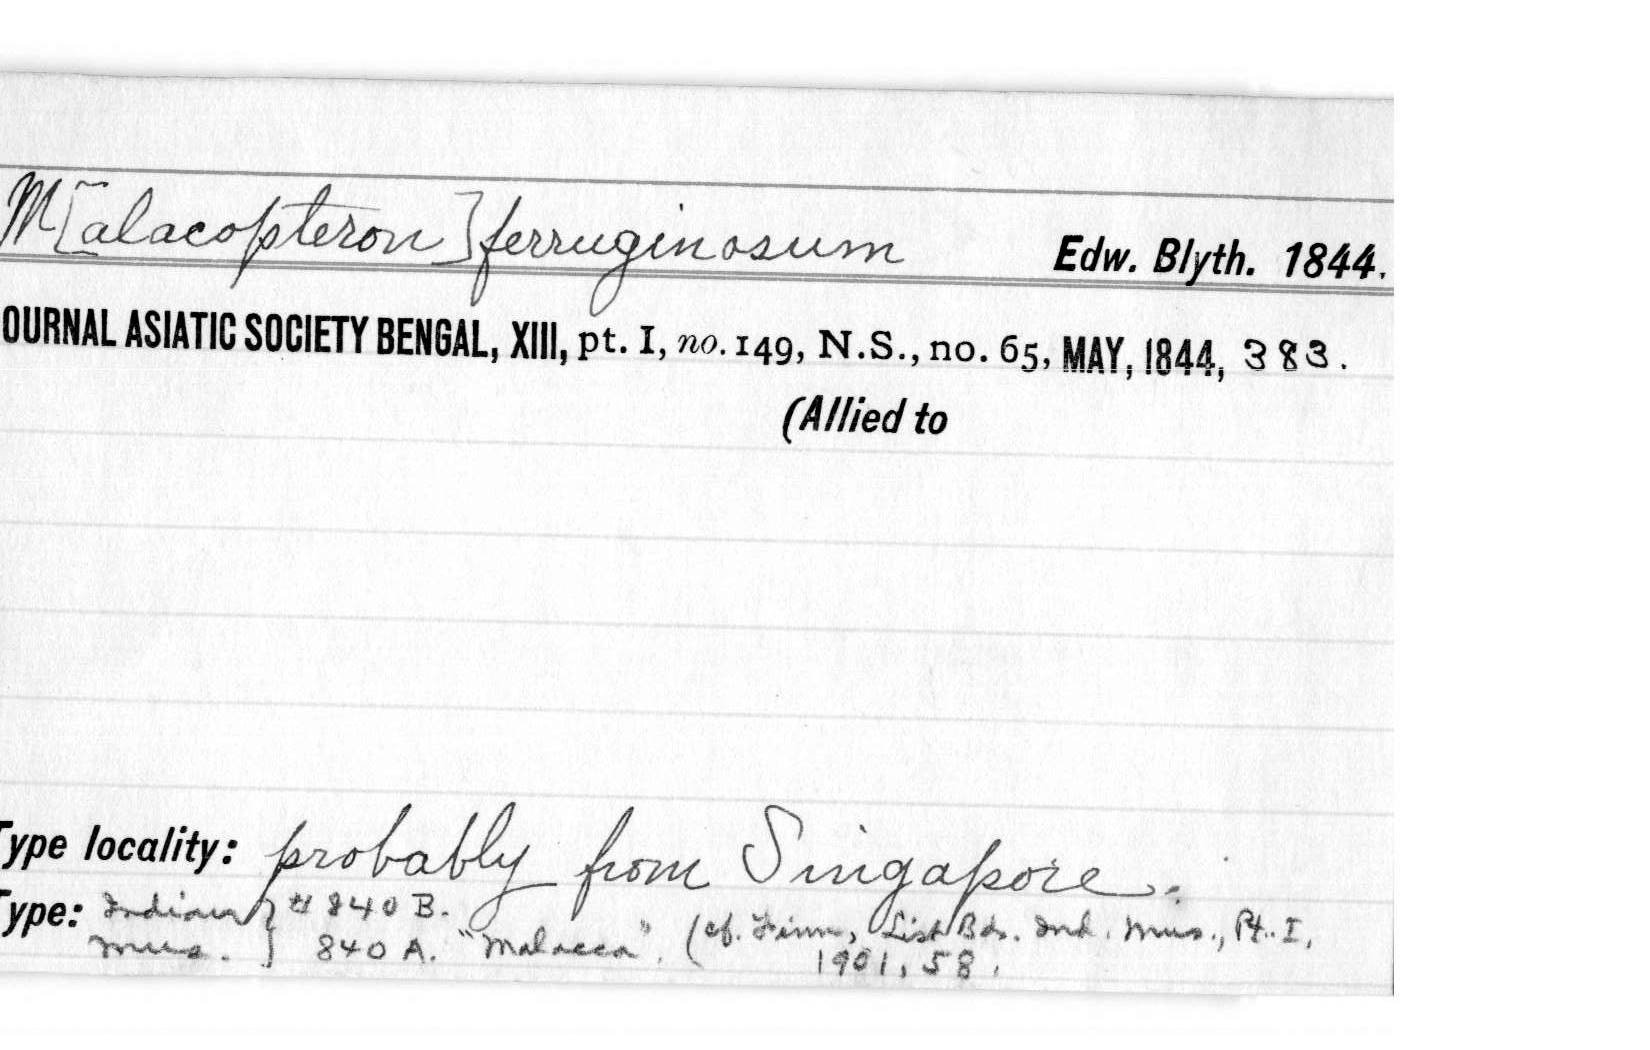 M[alacopteron] ferruginosum Edw. Blyth. 1844.
OURNAL ASIATIC SOCIETY BENGAL, XIII, pt. I, no. 149, N.S., no. 65, MAY, 1844, 383.
(Allied to
Type locality: probably from Singapore.
Type: Indian } # 840 B.
Mus. } 840 A. "Malacca". (cf. Finn, List Bds. Ind. Mus., Pt. I,
1901, 58.